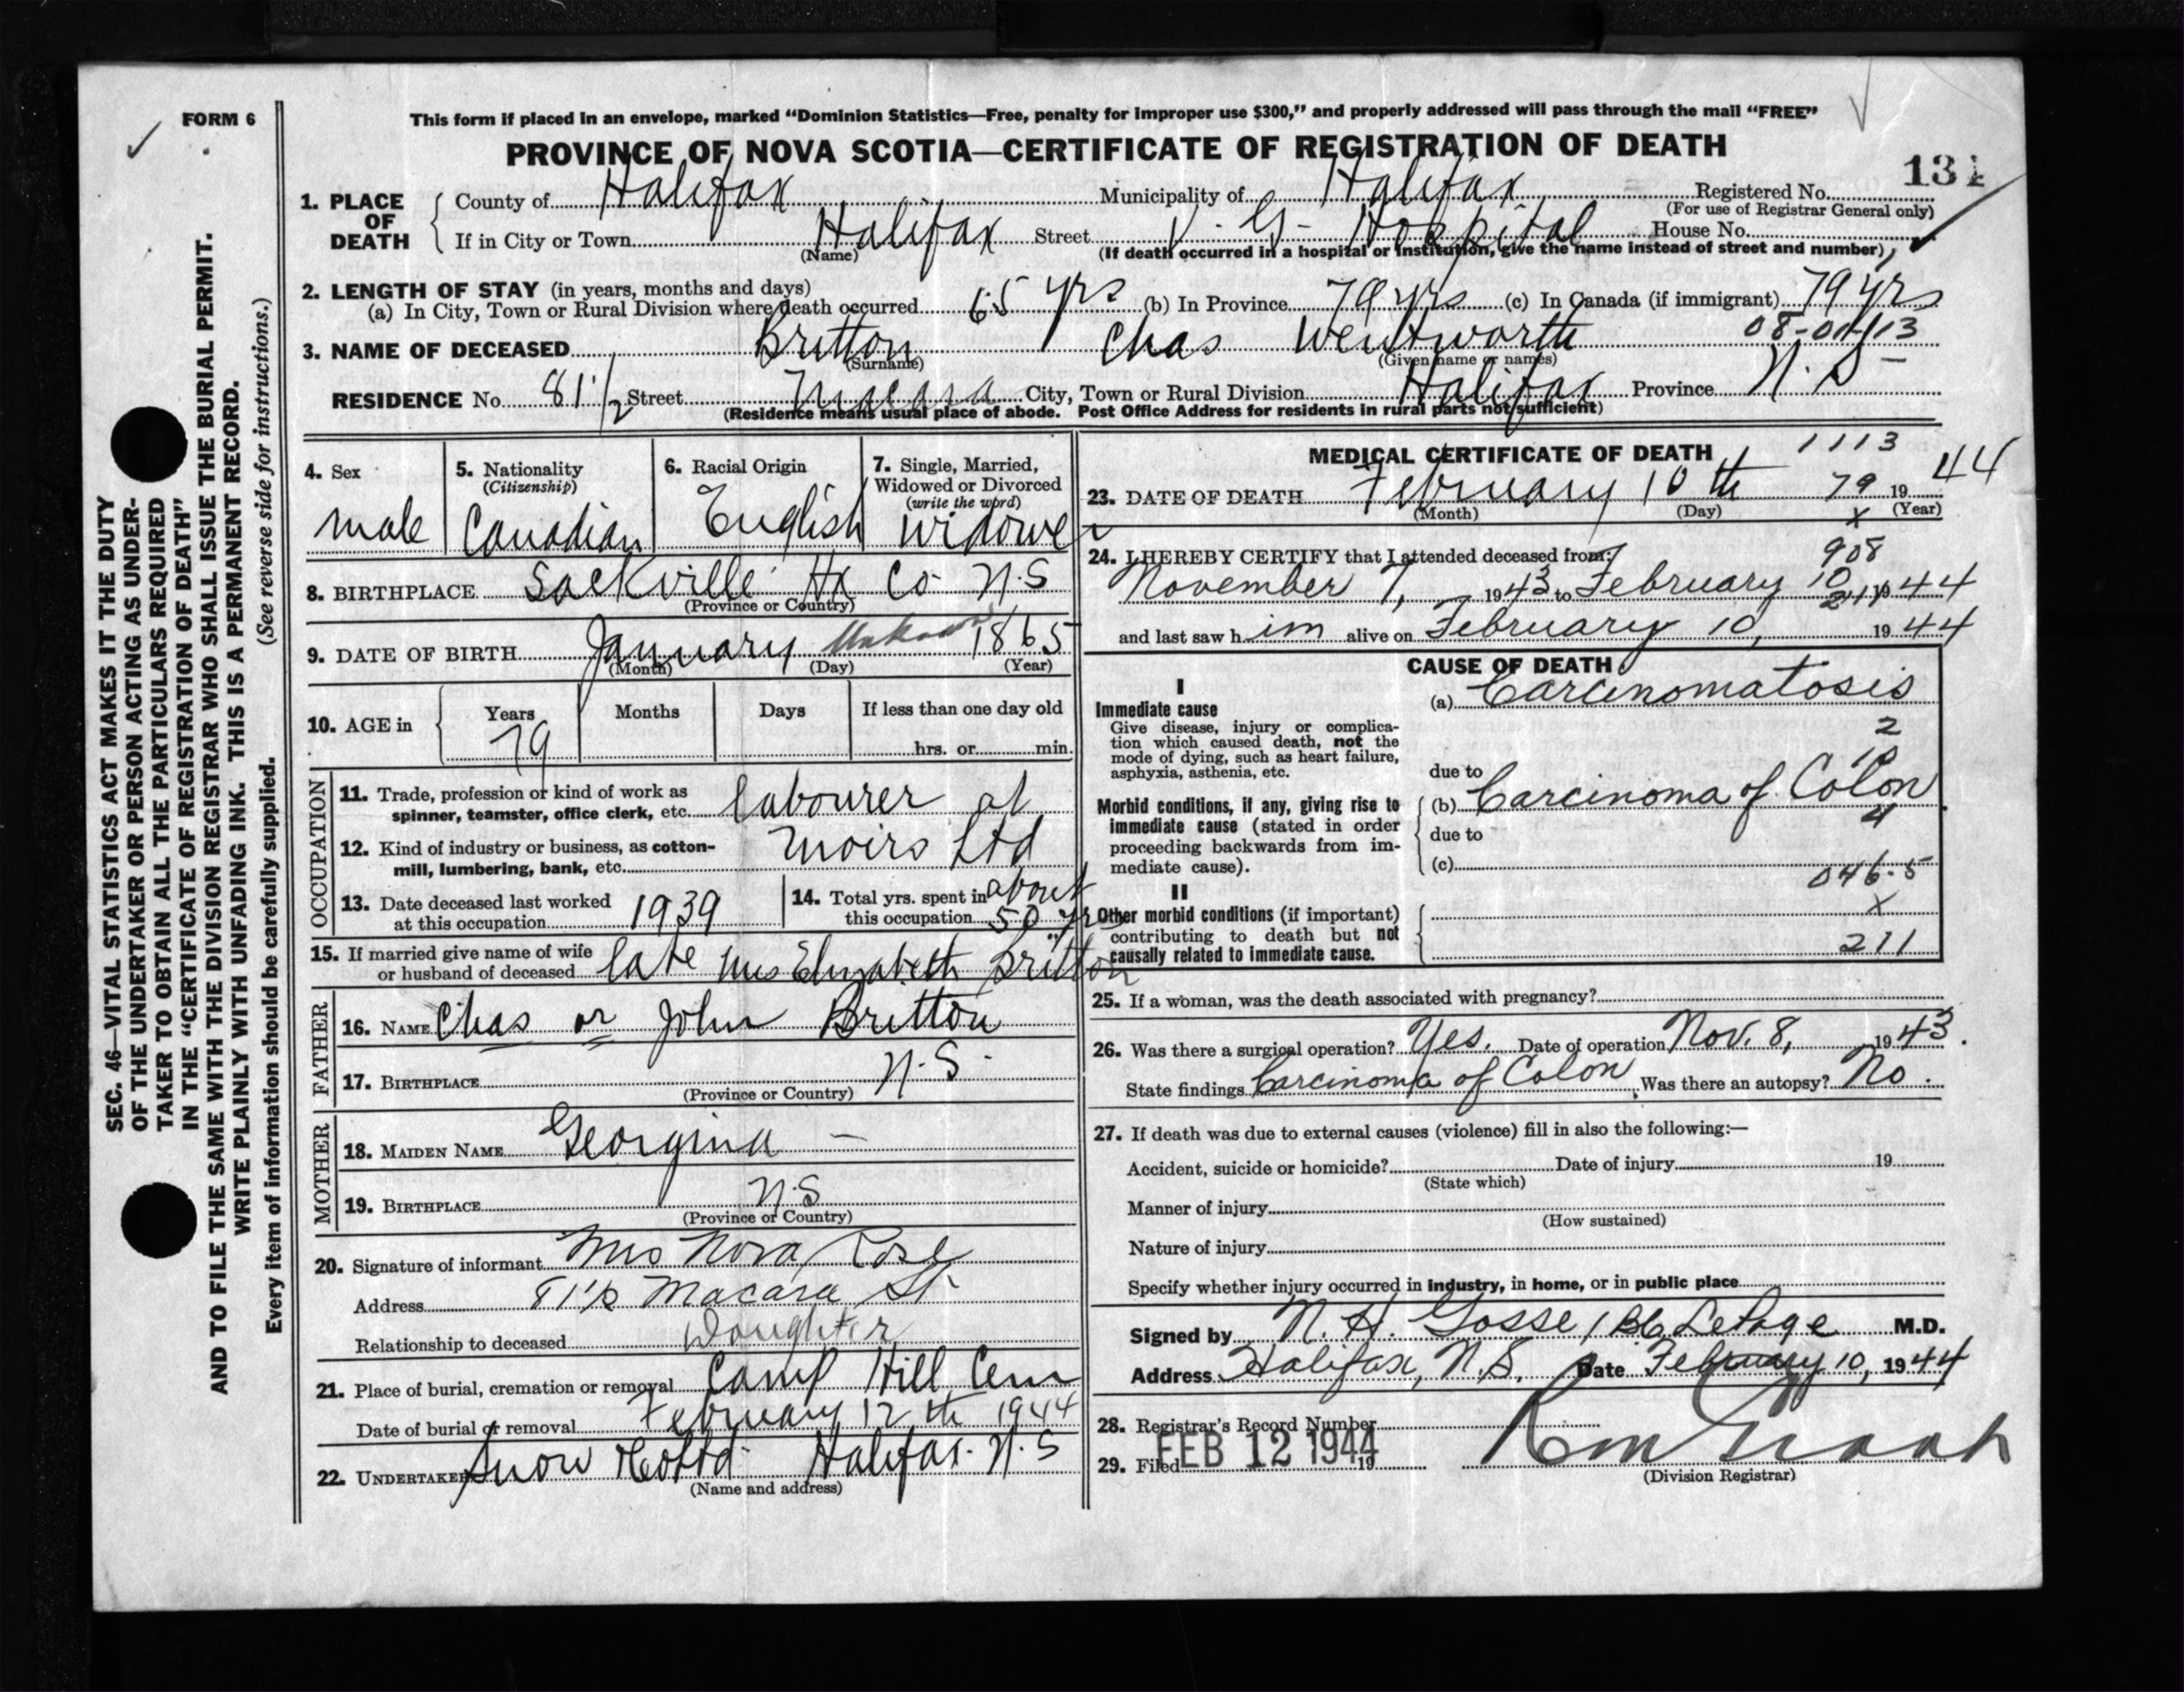 FORM 6
This form if placed in an envelope, marked "Dominion Statistics—Free, penalty for improper use $300," and properly addressed will pass through the mail "FREE"
PROVINCE OF NOVA SCOTIA—CERTIFICATE OF REGISTRATION OF DEATH
131
SEC. 46—VITAL STATISTICS ACT MAKES IT THE DUTY
OF THE UNDERTAKER OR PERSON ACTING AS UNDER-
TAKER TO OBTAIN ALL THE PARTICULARS REQUIRED
IN THE "CERTIFICATE OF REGISTRATION OF DEATH"
AND TO FILE THE SAME WITH THE DIVISION REGISTRAR WHO SHALL ISSUE THE BURIAL PERMIT.
WRITE PLAINLY WITH UNFADING INK. THIS IS A PERMANENT RECORD.
Every item of information should be carefully supplied. (See reverse side for instructions.)
1. PLACE OF DEATH
County of Halifax Municipality of Halifax Registered No.
(For use of Registrar General only)
If in City or Town Halifax Street V. G. Hospital House No.
(Name) (If death occurred in a hospital or institution, give the name instead of street and number)
2. LENGTH OF STAY (in years, months and days)
(a) In City, Town or Rural Division where death occurred 65 yrs (b) In Province 79 yrs (c) In Canada (if immigrant) 79 yrs
08-01-113
3. NAME OF DECEASED Britton Chas Wentworth
(Surname) (Given name or names)
RESIDENCE No. 81 1/2 Street Macara City, Town or Rural Division Halifax Province N.S
(Residence means usual place of abode. Post Office Address for residents in rural parts not sufficient)
4. Sex
male
5. Nationality
(Citizenship)
Canadian
6. Racial Origin
English
7. Single, Married,
Widowed or Divorced
(write the word)
widower
8. BIRTHPLACE Sackville Hx Co. N.S
(Province or Country)
9. DATE OF BIRTH January Unknown 1865
(Month) (Day) (Year)
10. AGE in
Years Months Days If less than one day old
79 hrs. or min.
OCCUPATION
11. Trade, profession or kind of work as
spinner, teamster, office clerk, etc. labourer at
12. Kind of industry or business, as cotton-
mill, lumbering, bank, etc. Moirs Ltd
13. Date deceased last worked
at this occupation 1939
14. Total yrs. spent in about
this occupation 50 yrs
15. If married give name of wife
or husband of deceased late Mrs Elizabeth Britton
FATHER
16. NAME Chas or John Britton
17. BIRTHPLACE N.S.
(Province or Country)
MOTHER
18. MAIDEN NAME Georgina —
19. BIRTHPLACE N.S
(Province or Country)
20. Signature of informant Mrs Nora Rose
Address 81 1/2 Macara St.
Relationship to deceased Daughter
21. Place of burial, cremation or removal Camp Hill Cem
Date of burial or removal February 12th 1944
22. UNDERTAKER Snow Co Ltd Halifax N.S
(Name and address)
MEDICAL CERTIFICATE OF DEATH 1113
23. DATE OF DEATH February 10th 79 1944
(Month) (Day) (Year)
x
24. I HEREBY CERTIFY that I attended deceased from: 908
November 7, 1943 to February 10, 1944
211
and last saw him alive on February 10, 1944
CAUSE OF DEATH
I
Immediate cause
Give disease, injury or complica-
tion which caused death, not the
mode of dying, such as heart failure,
asphyxia, asthenia, etc.
(a) Carcinomatosis
2
due to
Morbid conditions, if any, giving rise to
immediate cause (stated in order
proceeding backwards from im-
mediate cause).
(b) Carcinoma of Colon
4
due to
(c)
046.5
II
Other morbid conditions (if important)
contributing to death but not
causally related to immediate cause.
x
211
25. If a woman, was the death associated with pregnancy?
26. Was there a surgical operation? Yes. Date of operation Nov. 8, 1943.
State findings Carcinoma of Colon Was there an autopsy? No.
27. If death was due to external causes (violence) fill in also the following:—
Accident, suicide or homicide? Date of injury 19
(State which)
Manner of injury
(How sustained)
Nature of injury
Specify whether injury occurred in industry, in home, or in public place
Signed by N. H. Gosse / LePage M.D.
Address Halifax, N.S. Date February 10, 1944
28. Registrar's Record Number
29. Filed FEB 12 1944 19
(Division Registrar)